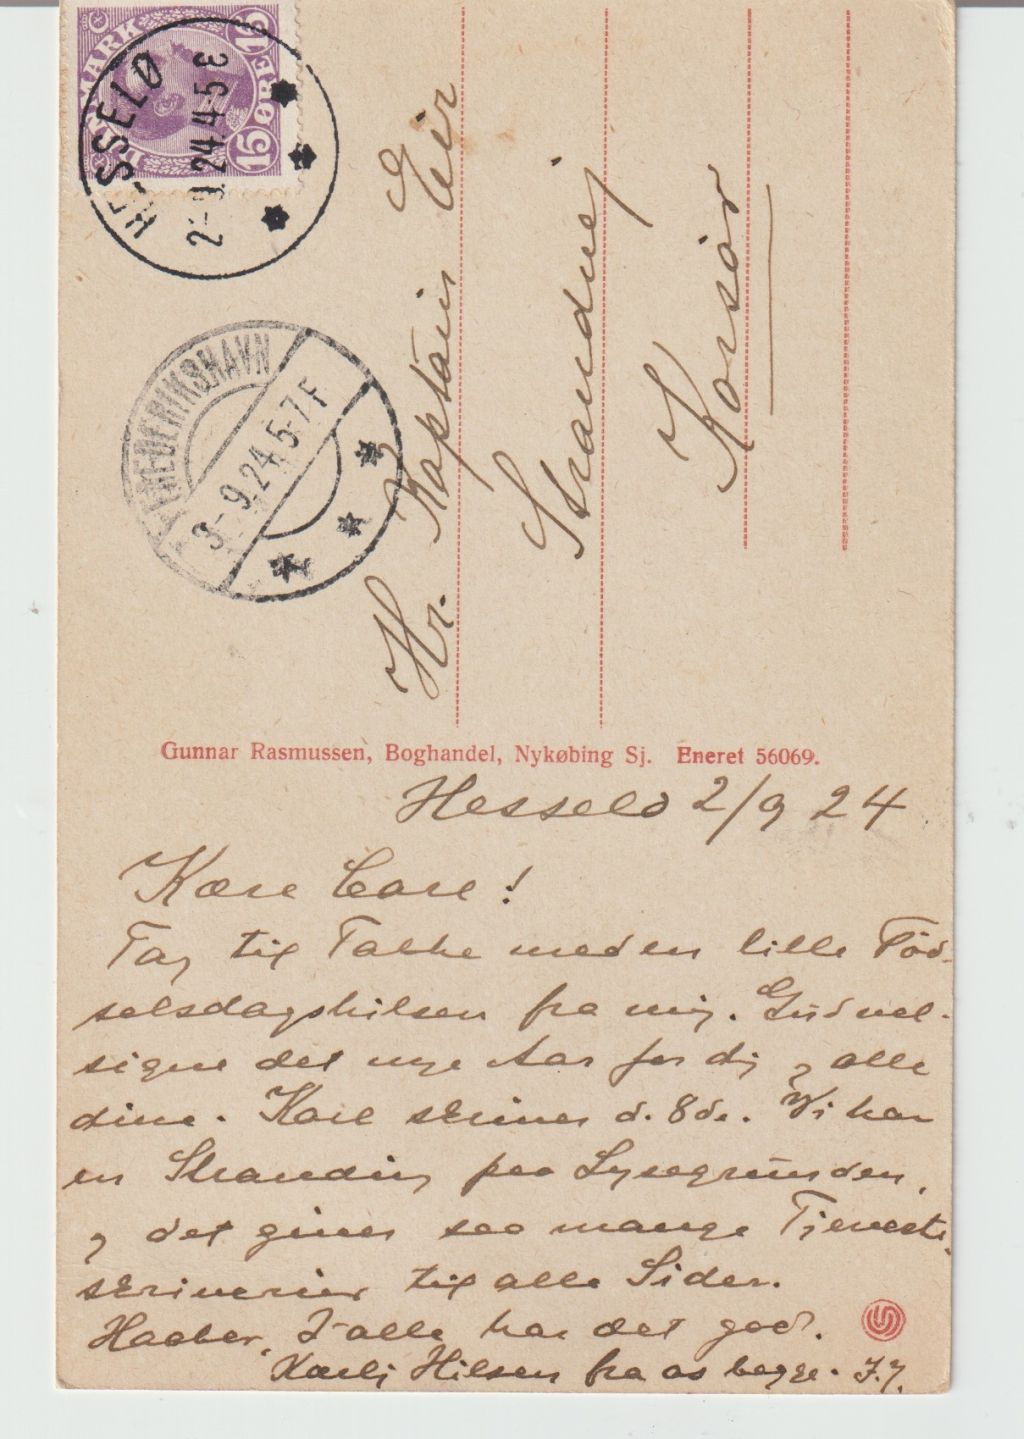 DANMARK
15 ØRE 15
HESSELØ
2-9.24.4-5 E
FREDERIKSHAVN
3-9.24.5-7 F
Hr. Kaptain Eir
Strandvej
Korsør
Gunnar Rasmussen, Boghandel, Nykøbing Sj. Eneret 56069.
Hesselø 2/9 24
Kære Care!
Tag til Takke med en lille Fød-
selsdagshilsen fra mig. Gud vel-
signe det nye Aar for dig og alle
dine. Karl skriver d. 8de. Vi har
en Stranding paa Lysegrunden,
og det giver saa mange Tjeneste-
skriverier til alle Sider.
Haaber, I alle har det god.
Kærlig Hilsen fra os begge. J.J.